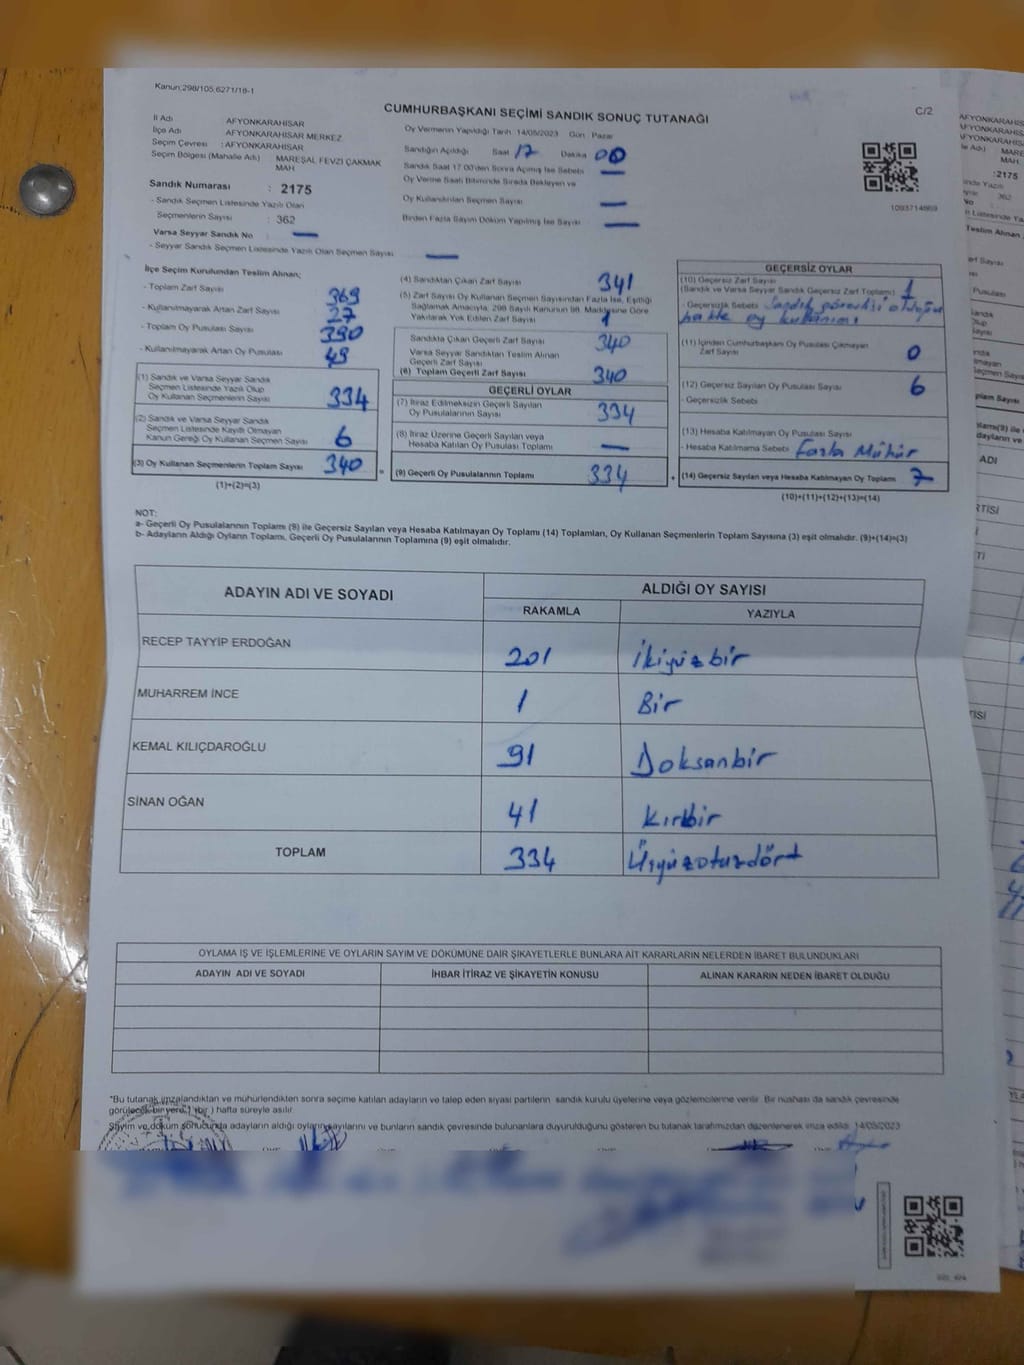 Kanun:298/105,6271/18-1
CUMHURBAŞKANI SEÇİMİ SANDIK SONUÇ TUTANAĞI
C/2
İl Adı AFYONKARAHİSAR
İlçe Adı AFYONKARAHİSAR MERKEZ
Seçim Çevresi : AFYONKARAHİSAR
Seçim Bölgesi (Mahalle Adı) MAREŞAL FEVZİ ÇAKMAK MAH.
Sandık Numarası : 2175
- Sandık Seçmen Listesinde Yazılı Olan
Seçmenlerin Sayısı : 362
Varsa Seyyar Sandık No —
- Seyyar Sandık Seçmen Listesinde Yazılı Olan Seçmen Sayısı —
Oy Vermenin Yapıldığı Tarih: 14/05/2023 Gün: Pazar
Sandığın Açıldığı Saat 17 Dakika 00
Sandık Saat 17:00'den Sonra Açılmış İse Sebebi —
Oy Verme Saati Bitiminde Sırada Bekleyen ve
Oy Kullandırılan Seçmen Sayısı —
Birden Fazla Sayım Döküm Yapılmış İse Sayısı —
1093714869
İlçe Seçim Kurulundan Teslim Alınan;
- Toplam Zarf Sayısı 369
- Kullanılmayarak Artan Zarf Sayısı 27
- Toplam Oy Pusulası Sayısı 390
- Kullanılmayarak Artan Oy Pusulası 49
(1) Sandık ve Varsa Seyyar Sandık
Seçmen Listesinde Yazılı Olup
Oy Kullanan Seçmenlerin Sayısı 334
(2) Sandık ve Varsa Seyyar Sandık
Seçmen Listesinde Kayıtlı Olmayan
Kanun Gereği Oy Kullanan Seçmen Sayısı 6
(3) Oy Kullanan Seçmenlerin Toplam Sayısı 340
(1)+(2)=(3)
(4) Sandıktan Çıkan Zarf Sayısı 341
(5) Zarf Sayısı Oy Kullanan Seçmen Sayısından Fazla İse, Eşitliği
Sağlamak Amacıyla, 298 Sayılı Kanunun 98. Maddesine Göre
Yakılarak Yok Edilen Zarf Sayısı 1
Sandıkta Çıkan Geçerli Zarf Sayısı 340
Varsa Seyyar Sandıktan Teslim Alınan
Geçerli Zarf Sayısı
(6) Toplam Geçerli Zarf Sayısı 340
GEÇERLİ OYLAR
(7) İtiraz Edilmeksizin Geçerli Sayılan
Oy Pusulalarının Sayısı 334
(8) İtiraz Üzerine Geçerli Sayılan veya
Hesaba Katılan Oy Pusulası Toplamı —
(9) Geçerli Oy Pusulalarının Toplamı 334
GEÇERSİZ OYLAR
(10) Geçersiz Zarf Sayısı
(Sandık ve Varsa Seyyar Sandık Geçersiz Zarf Toplamı) 1
- Geçersizlik Sebebi Sandık görevlisi olduğu
halde oy kullanımı
(11) İçinden Cumhurbaşkanı Oy Pusulası Çıkmayan
Zarf Sayısı 0
(12) Geçersiz Sayılan Oy Pusulası Sayısı 6
- Geçersizlik Sebebi
(13) Hesaba Katılmayan Oy Pusulası Sayısı
- Hesaba Katılmama Sebebi Fazla Mühür
(14) Geçersiz Sayılan veya Hesaba Katılmayan Oy Toplamı 7
(10)+(11)+(12)+(13)=(14)
NOT:
a- Geçerli Oy Pusulalarının Toplamı (9) ile Geçersiz Sayılan veya Hesaba Katılmayan Oy Toplamı (14) Toplamları, Oy Kullanan Seçmenlerin Toplam Sayısına (3) eşit olmalıdır. (9)+(14)=(3)
b- Adayların Aldığı Oyların Toplamı, Geçerli Oy Pusulalarının Toplamına (9) eşit olmalıdır.
ADAYIN ADI VE SOYADI ALDIĞI OY SAYISI
RAKAMLA YAZIYLA
RECEP TAYYİP ERDOĞAN 201 İkiyüzbir
MUHARREM İNCE 1 Bir
KEMAL KILIÇDAROĞLU 91 Doksanbir
SİNAN OĞAN 41 Kırkbir
TOPLAM 334 Üçyüzotuzdört
OYLAMA İŞ VE İŞLEMLERİNE VE OYLARIN SAYIM VE DÖKÜMÜNE DAİR ŞİKAYETLERLE BUNLARA AİT KARARLARIN NELERDEN İBARET BULUNDUKLARI
ADAYIN ADI VE SOYADI İHBAR İTİRAZ VE ŞİKAYETİN KONUSU ALINAN KARARIN NEDEN İBARET OLDUĞU
"Bu tutanak imzalandıktan ve mühürlendikten sonra seçime katılan adayların ve talep eden siyasi partilerin sandık kurulu üyelerine veya gözlemcilerine verilir. Bir nüshası da sandık çevresinde
görülecek bir yere 1 (bir) hafta süreyle asılır.
Sayım ve döküm sonucunda adayların aldığı oyların sayılarını ve bunların sandık çevresinde bulunanlara duyurulduğunu gösteren bu tutanak tarafımızdan düzenlenerek imza edildi. 14/05/2023